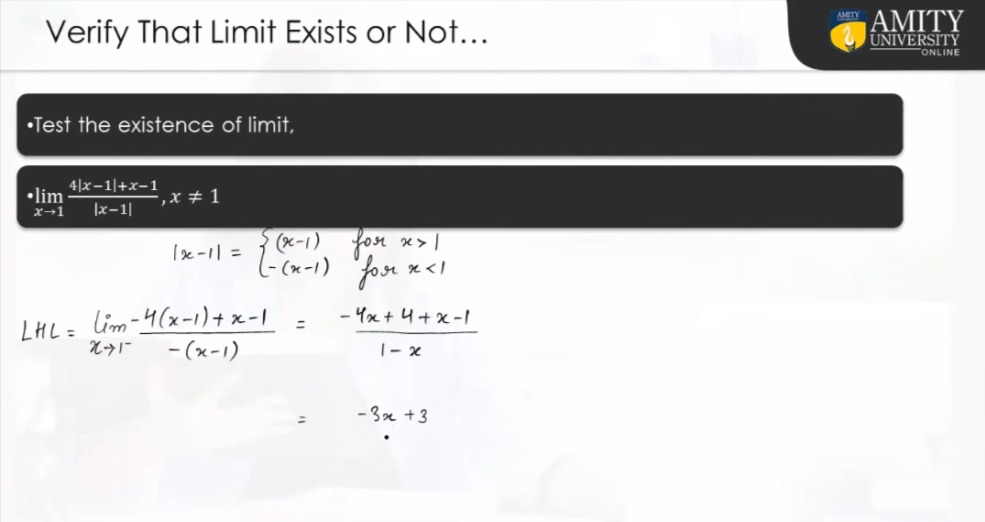 Verify That Limit Exists or Not...
AMITY
AMITY
UNIVERSITY
ONLINE
•Test the existence of limit,
•lim x→1 (4|x−1|+x−1)/|x−1| , x ≠ 1
|x-1| = { (x-1) for x > 1
-(x-1) for x < 1
LHL = lim x→1⁻ (-4(x-1) + x-1)/(-(x-1)) = (-4x + 4 + x - 1)/(1 - x)
= -3x + 3